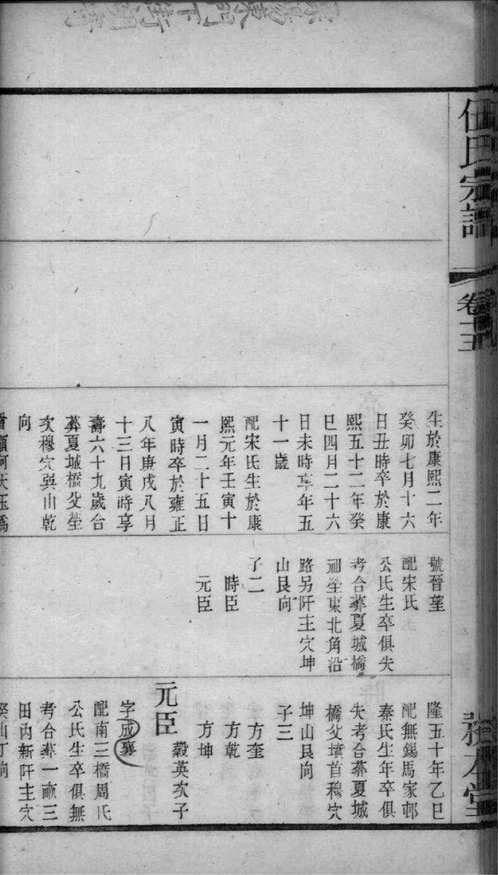 宗譜
卷十五
生於康熙二年
癸卯七月十六
日丑時卒於康
熙五十二年癸
巳四月二十六
日未時享年五
十一歲
配宋氏生於康
熙元年壬寅十
一月二十五日
寅時卒於雍正
八年庚戌八月
十三日寅時享
壽六十九歲合
葬夏城橋父塋
次穆穴艮山乾
向
號晉菫
配宋氏
公氏生卒俱失
考合葬夏城橋
祖塋東北角沿
路另阡主穴坤
山艮向
子二
時臣
元臣
隆五十年乙巳
配無錫馬家邨
秦氏生年卒俱
失考合葬夏城
橋父墳首穆穴
坤山艮向
子三
方奎
方乾
方坤
元臣
毅英次子
字成襄
配南三橋周氏
公氏生卒俱無
考合葬一畝三
田內新阡主穴